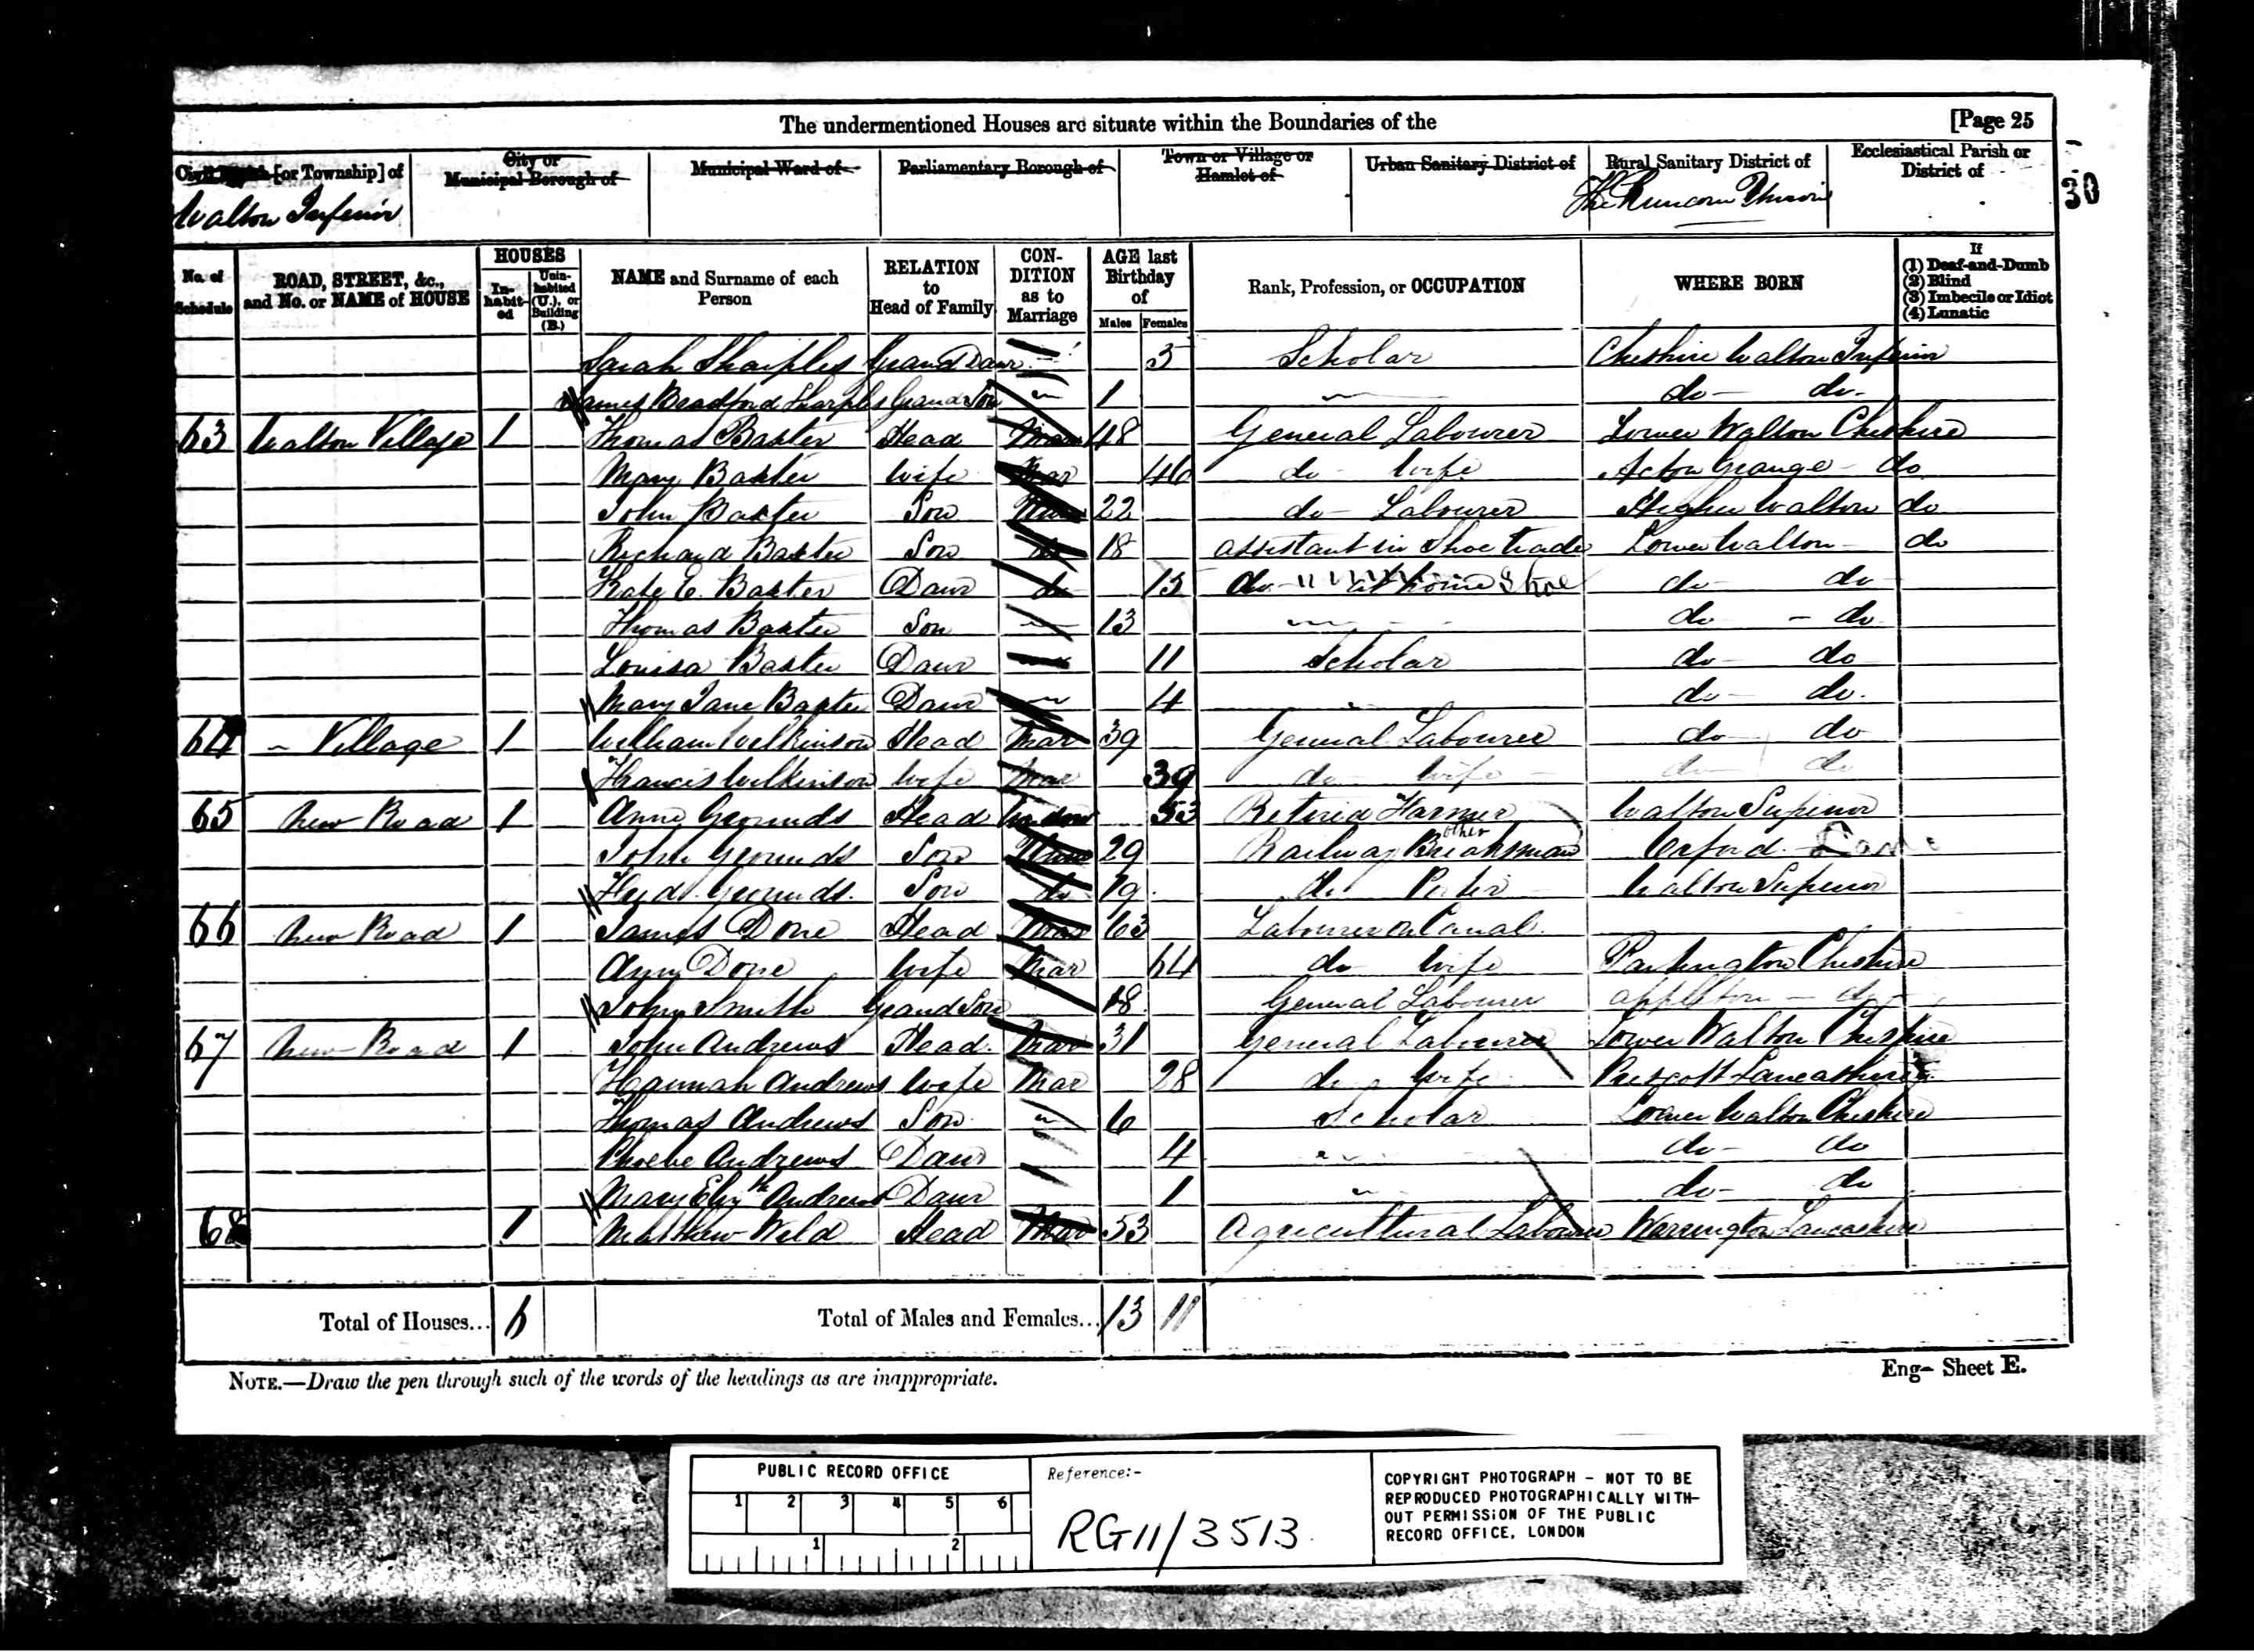 The undermentioned Houses are situate within the Boundaries of the [Page 25
[or Township] of City or Municipal Borough of Municipal Ward of Parliamentary Borough of Town or Village or Hamlet of Urban Sanitary District of Rural Sanitary District of Ecclesiastical Parish or District of
Walton Inferior The Runcorn Union 30
No. of Schedule ROAD, STREET, &c., and No. or NAME of HOUSE HOUSES Inhabited Uninhabited (U.), or Building (B.) NAME and Surname of each Person RELATION to Head of Family CONDITION as to Marriage AGE last Birthday of Males Females Rank, Profession, or OCCUPATION WHERE BORN If (1) Deaf-and-Dumb (2) Blind (3) Imbecile or Idiot (4) Lunatic
Sarah Sharples Grand Daur 5 Scholar Cheshire Walton Inferior
James Bradford Sharples Grand Son 1 do do
63 Walton Village 1 Thomas Baxter Head Mar 48 General Labourer Lower Walton Cheshire
Mary Baxter Wife Mar 46 do Wife Acton Grange do
John Baxter Son 22 do Labourer Higher Walton do
Richard Baxter Son do 18 assistant in Shoe trade Lower Walton do
Kate E. Baxter Daur do 15 do at home Shoe do do
Thomas Baxter Son 13 do do
Louisa Baxter Daur 11 Scholar do do
Mary Jane Baxter Daur 4 do do
64 Village 1 William Wilkinson Head Mar 39 General Labourer do do
Francis Wilkinson Wife Mar 39 do Wife do do
65 New Road 1 Anne Grounds Head Widow 53 Retired Farmer Walton Superior
John Grounds Son 29 Railway Breaksman other Orford Lanc
Fred Grounds Son do 19 do Porter Walton Superior
66 New Road 1 James Done Head Mar 63 Labourer on Canal
Ann Done Wife Mar 64 do Wife Partington Cheshire
John Smith Grand Son 18 General Labourer Appleton do
67 New Road 1 John Andrews Head Mar 31 General Labourer Lower Walton Cheshire
Hannah Andrews Wife Mar 28 do Wife Prescott Lancashire
Thomas Andrews Son 6 Scholar Lower Walton Cheshire
Phoebe Andrews Daur 4 do do
Mary Elizth Andrews Daur 1 do do
68 1 Matthew Weld Head Mar 53 Agricultural Labourer Warrington Lancashire
Total of Houses... 6 Total of Males and Females... 13 11
NOTE.—Draw the pen through such of the words of the headings as are inappropriate. Eng- Sheet E.
PUBLIC RECORD OFFICE
1 2 3 4 5 6
1 2
Reference:-
RG11/3513
COPYRIGHT PHOTOGRAPH - NOT TO BE
REPRODUCED PHOTOGRAPHICALLY WITH-
OUT PERMISSION OF THE PUBLIC
RECORD OFFICE, LONDON